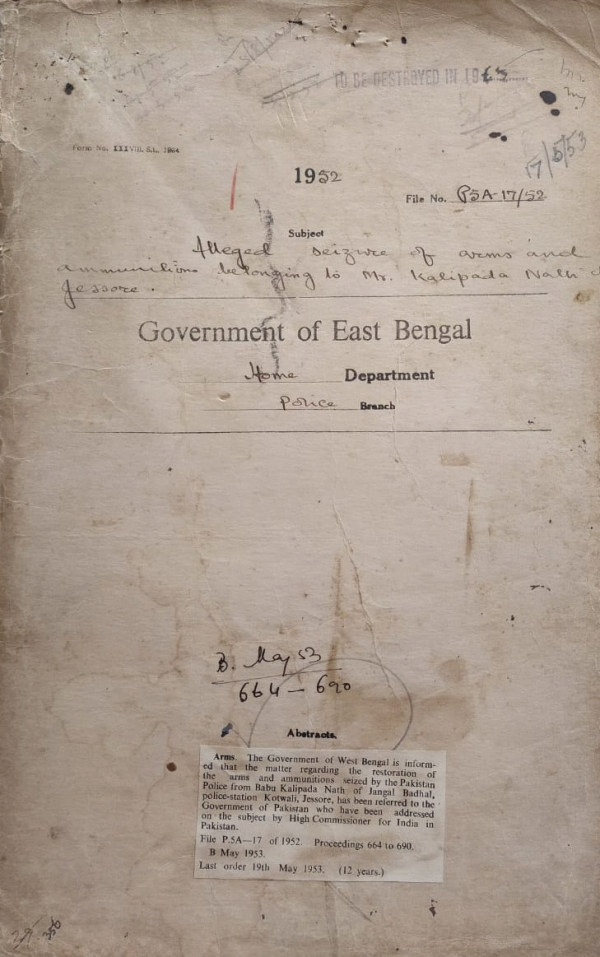 TO BE DESTROYED IN 1965
17/5/53
1952
File No. P5A-17/52
Subject
Alleged seizure of arms and
ammunitions belonging to Mr. Kalipada Nath
Jessore.
Government of East Bengal
Home Department
Police Branch
B. May 53
664 — 690
Abstracts.
Arms. The Government of West Bengal is inform-
ed that the matter regarding the restoration of
the arms and ammunitions seized by the Pakistan
Police from Babu Kalipada Nath of Jangal Badhal,
police-station Kotwali, Jessore, has been referred to the
Government of Pakistan who have been addressed
on the subject by High Commissioner for India in
Pakistan.
File P.5A—17 of 1952. Proceedings 664 to 690.
B May 1953.
Last order 19th May 1953. (12 years.)